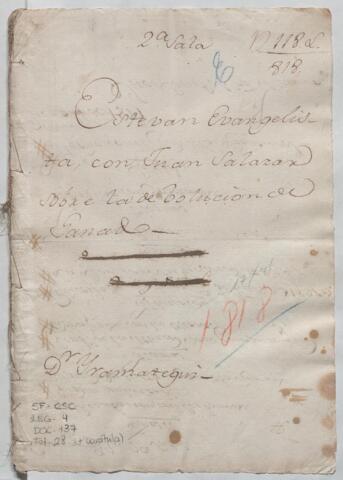 2ª Sala
818
Estevan Evangelis
ta, con Juan Salazar
sobre la debolucion de
Ganado
1818
Dr. Uramategui
SF - CSC
LEG - 4
DOC - 137
Fol - 28 (+ carátula)